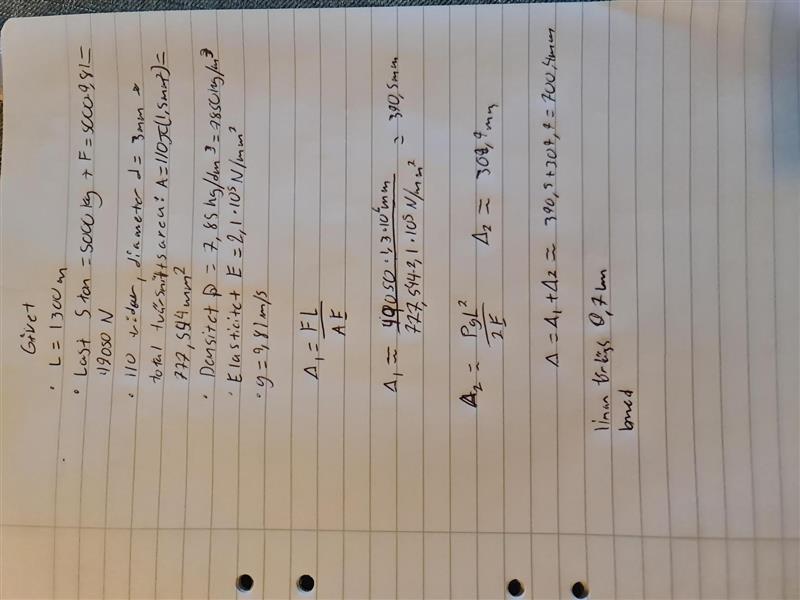 Givet
· L = 1300 m
· Last 5 ton = 5000 kg → F = 5000·9,81 =
49050 N
· 110 vidaer, diameter d = 3mm →
total tvärsnittsarea: A = 110π(1,5mm²) =
777,544 mm²
· Densitet ρ = 7,85 kg/dm³ = 7850 kg/m³
· Elasticitet E = 2,1·10⁵ N/mm²
· g = 9,81 m/s
Δ₁ = FL/AE
Δ₁ ≈ 49050·1,3·10⁶mm/777,544·2,1·10⁵ N/mm² = 390,5mm
Δ₂ = ρgL²/2E Δ₂ ≈ 309,9 mm
Δ = Δ₁ + Δ₂ ≈ 390,5 + 309,9 = 700,4mm
linan förlägs 0,7 m